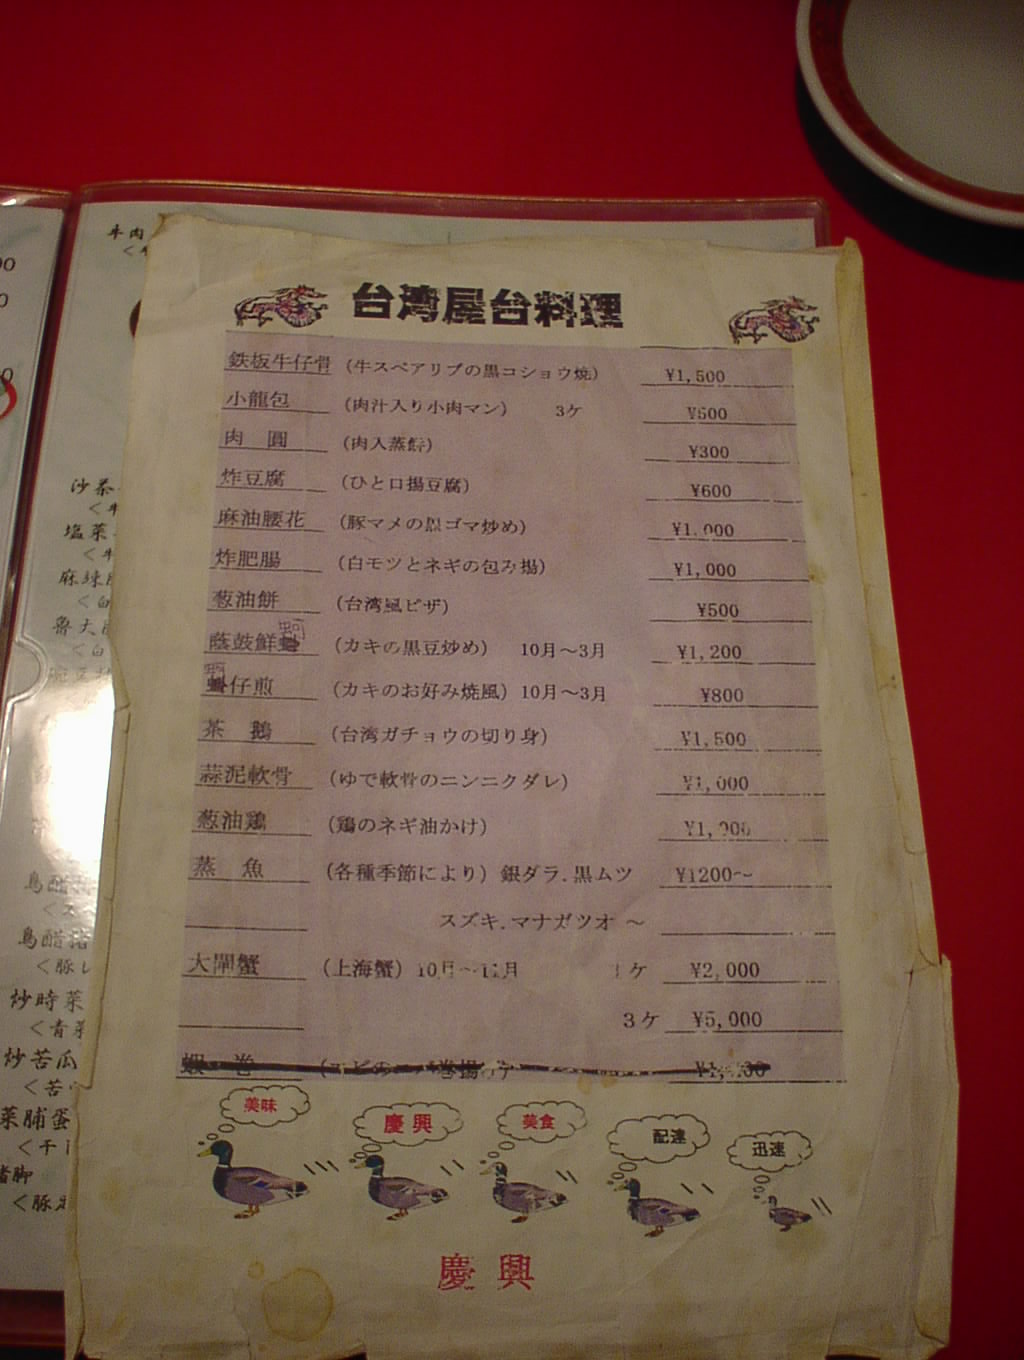 台湾屋台料理
鉄板牛仔骨 (牛スペアリブの黒コショウ焼) ¥1,500
小龍包 (肉汁入り小肉マン) 3ケ ¥500
肉 圓 (肉入蒸餅) ¥300
炸豆腐 (ひと口揚豆腐) ¥600
麻油腰花 (豚マメの黒ゴマ炒め) ¥1,000
炸肥腸 (白モツとネギの包み揚) ¥1,000
葱油餅 (台湾風ピザ) ¥500
蔭鼓鮮蚵 (カキの黒豆炒め) 10月〜3月 ¥1,200
蚵仔煎 (カキのお好み焼風) 10月〜3月 ¥800
茶 鵝 (台湾ガチョウの切り身) ¥1,500
蒜泥軟骨 (ゆで軟骨のニンニクダレ) ¥1,000
葱油鶏 (鶏のネギ油かけ) ¥1,000
蒸 魚 (各種季節により) 銀ダラ.黒ムツ ¥1200〜
スズキ.マナガツオ 〜
大閘蟹 (上海蟹) 10月〜 1ケ ¥2,000
3ケ ¥5,000
蝦 巻
美味 慶興 美食 配達 迅速
慶興
牛肉
塩菜
鳥醋
炒時菜
<青菜
炒苦瓜
<苦
菜脯蛋
<干